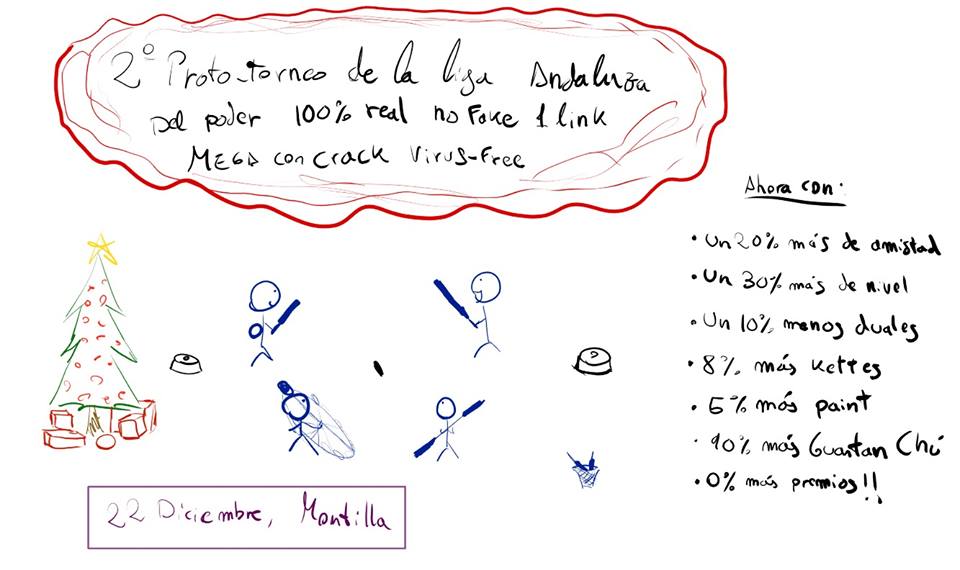 2º Proto-torneo de la liga Andaluza
Del poder 100% real no Fake 1 link
MEGA con crack Virus-Free
Ahora con:
• Un 20% más de amistad
• Un 30% más de nivel
• Un 10% menos duales
• 8% más kettes
• 5% más paint
• 90% más Guantan Chú
• 0% más premios!!
22 Diciembre, Montilla